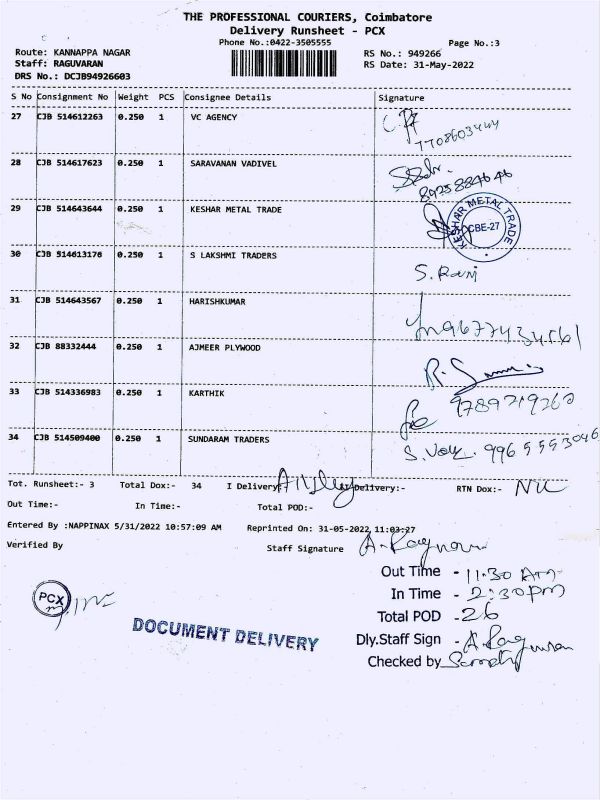 THE PROFESSIONAL COURIERS, Coimbatore
Delivery Runsheet - PCX
Phone No.:0422-3505555 Page No.:3
Route: KANNAPPA NAGAR RS No.: 949266
Staff: RAGUVARAN RS Date: 31-May-2022
DRS No.: DCJB94926603
S No Consignment No Weight PCS Consignee Details Signature
27 CJB 514612263 0.250 1 VC AGENCY
7708603444
28 CJB 514617623 0.250 1 SARAVANAN VADIVEL
8925884646
29 CJB 514643644 0.250 1 KESHAR METAL TRADE
KESHAR METAL TRADE
CBE-27
30 CJB 514613176 0.250 1 S LAKSHMI TRADERS
S. Rani
31 CJB 514643567 0.250 1 HARISHKUMAR
9677434561
32 CJB 88332444 0.250 1 AJMEER PLYWOOD
33 CJB 514336983 0.250 1 KARTHIK
9789219260
34 CJB 514509400 0.250 1 SUNDARAM TRADERS
9965593046
Tot. Runsheet:- 3 Total Dox:- 34 I Delivery Delivery:- RTN Dox:- Nil
Out Time:- In Time:- Total POD:-
Entered By :NAPPINAX 5/31/2022 10:57:09 AM Reprinted On: 31-05-2022 11:03:27
Verified By Staff Signature
Out Time - 11.30 Am
In Time - 2:30pm
PCX
Total POD - 26
DOCUMENT DELIVERY
Dly.Staff Sign - A. Raguvaran
Checked by